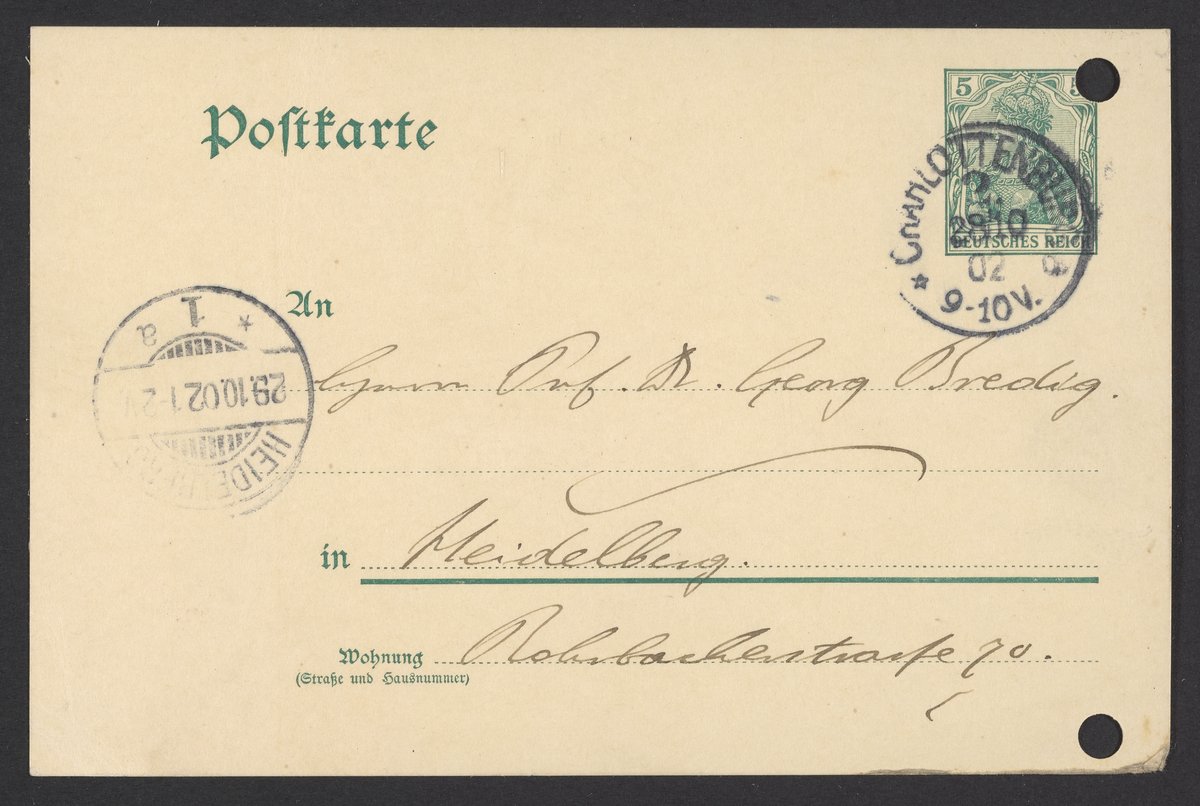 Postkarte
5 5
DEUTSCHES REICH
CHARLOTTENBURG
2
28 10
02
9-10V.
An
Herrn Prof. Dr. Georg Bredig.
1
a
29.10.02.1-2V
HEIDELBERG
in Heidelberg.
Wohnung Rohrbacherstrasse 70.
(Straße und Hausnummer)